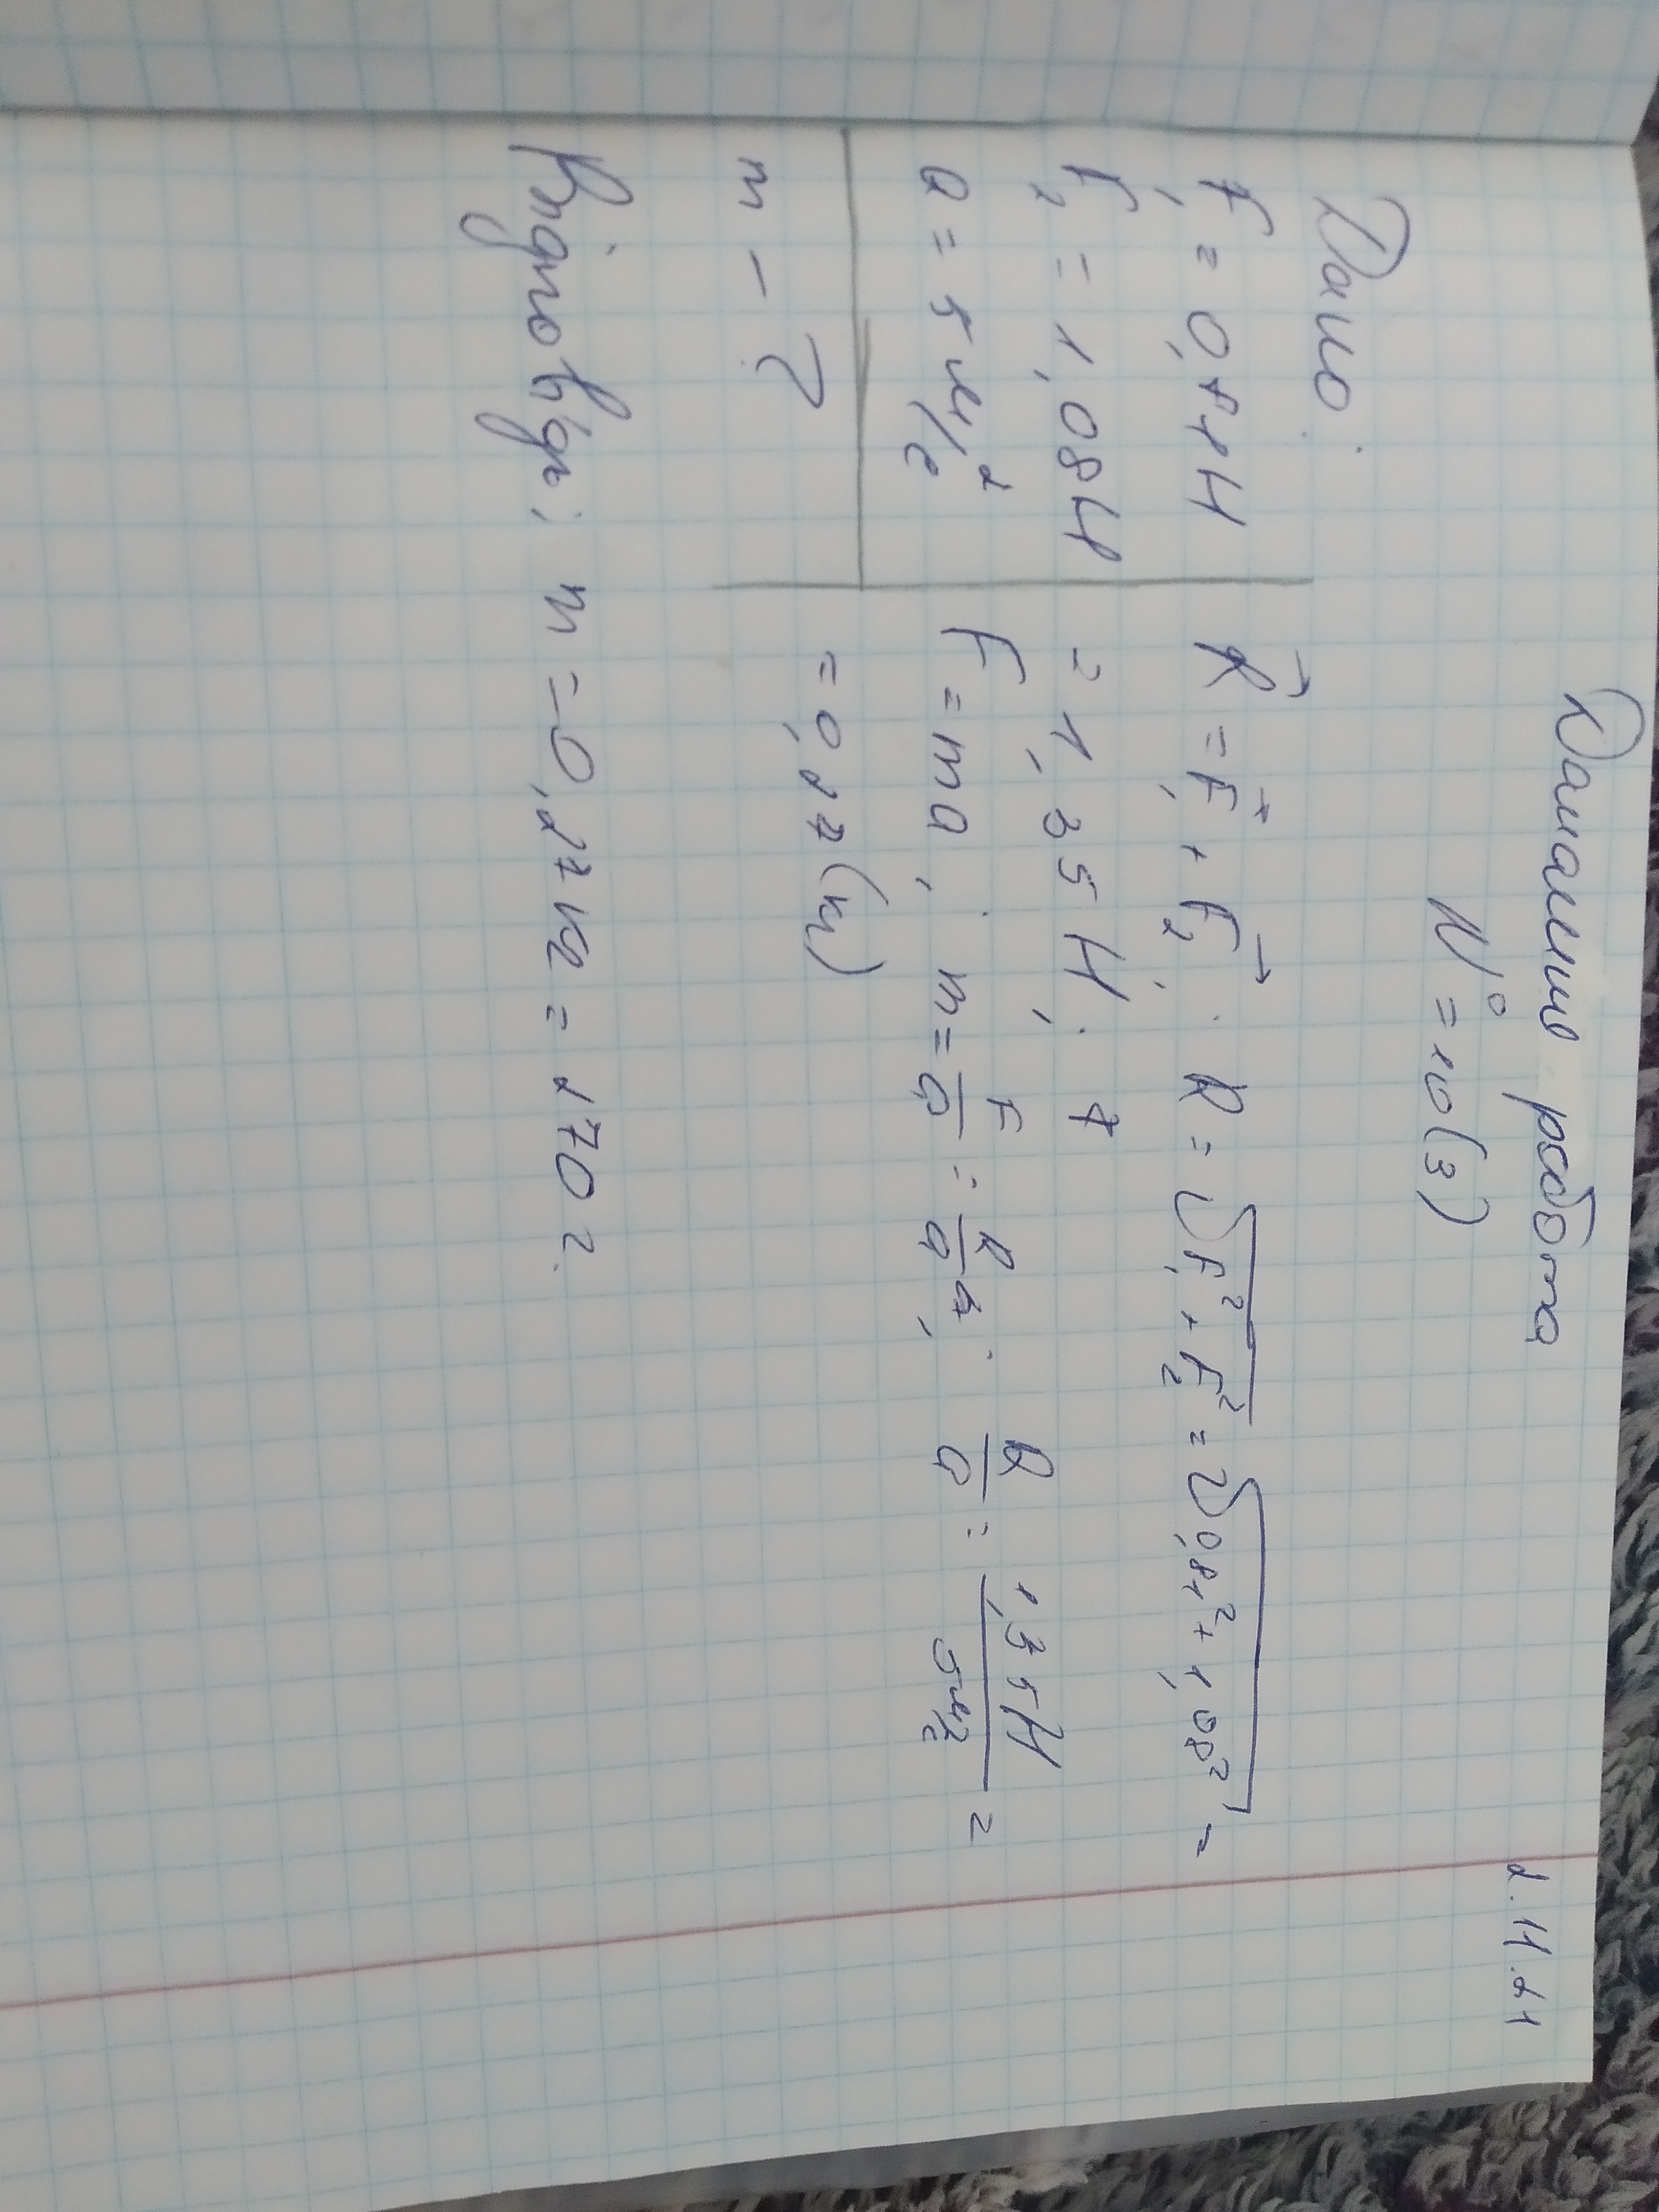 2.11.21
Домашня робота
N° = 10(3)
Дано:
F₁ = 0,81Н
F₂ = 1,08Н
a = 5 м/с²
m - ?
R⃗ = F⃗₁ + F⃗₂; R = √F₁² + F₂² = √0,81² + 1,08² =
= 1,35 Н;
F = ma; m = F/a = R/a; R/a = 1,35Н/5м/с² =
= 0,27(кг)
Відповідь: m = 0,27 кг = 270 г.